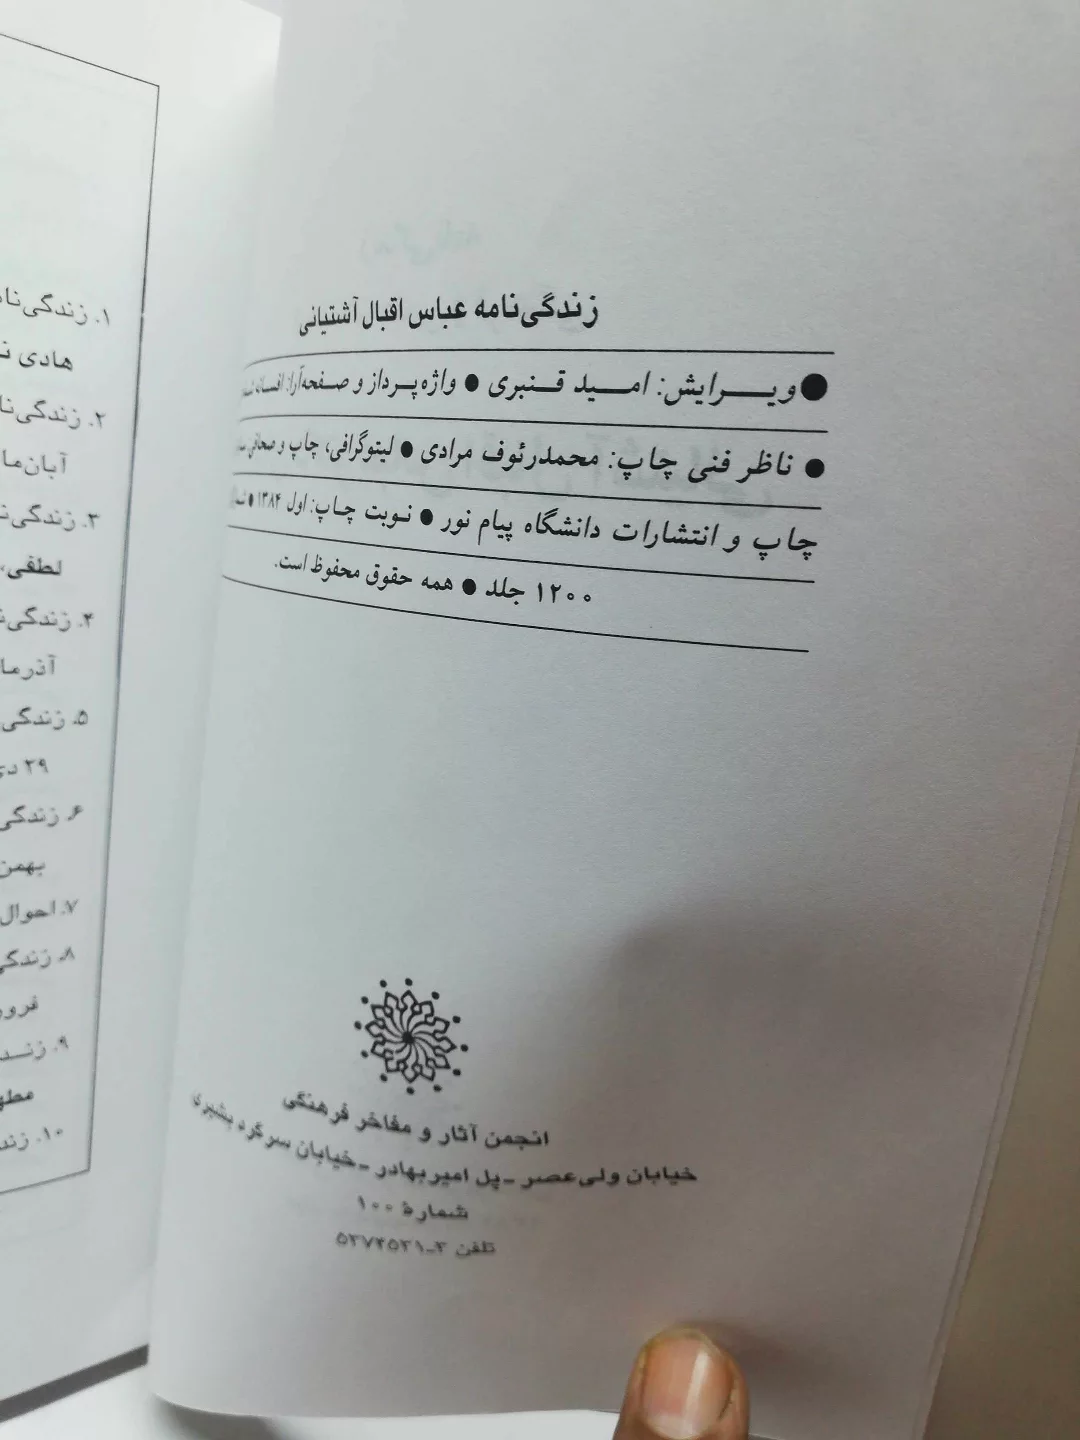 زندگی‌نامه عباس اقبال آشتیانی
● ویرایش: امید قنبری ● واژه‌پرداز و صفحه‌آرا: افسانه
● ناظر فنی چاپ: محمدرئوف مرادی ● لیتوگرافی، چاپ و صحافی
چاپ و انتشارات دانشگاه پیام نور ● نوبت چاپ: اول ۱۳۸۴ ●
۱۲۰۰ جلد ● همه حقوق محفوظ است.
انجمن آثار و مفاخر فرهنگی
خیابان ولی‌عصر - پل امیربهادر - خیابان سرگرد بشیری
شمارهٔ ۱۰۰
تلفن ۳-۵۳۷۴۵۳۱
۱. زندگی‌نا
هادی
۲. زندگی‌نا
آبان‌ما
۳. زندگی‌ن
لطفی،
۴. زندگی‌ن
آذرما
۵. زندگی
۲۹ دی
۶. زندگی
بهمن
۷. احوال
۸. زندگی
فرور
۹. زند
مطه
۱۰. زند